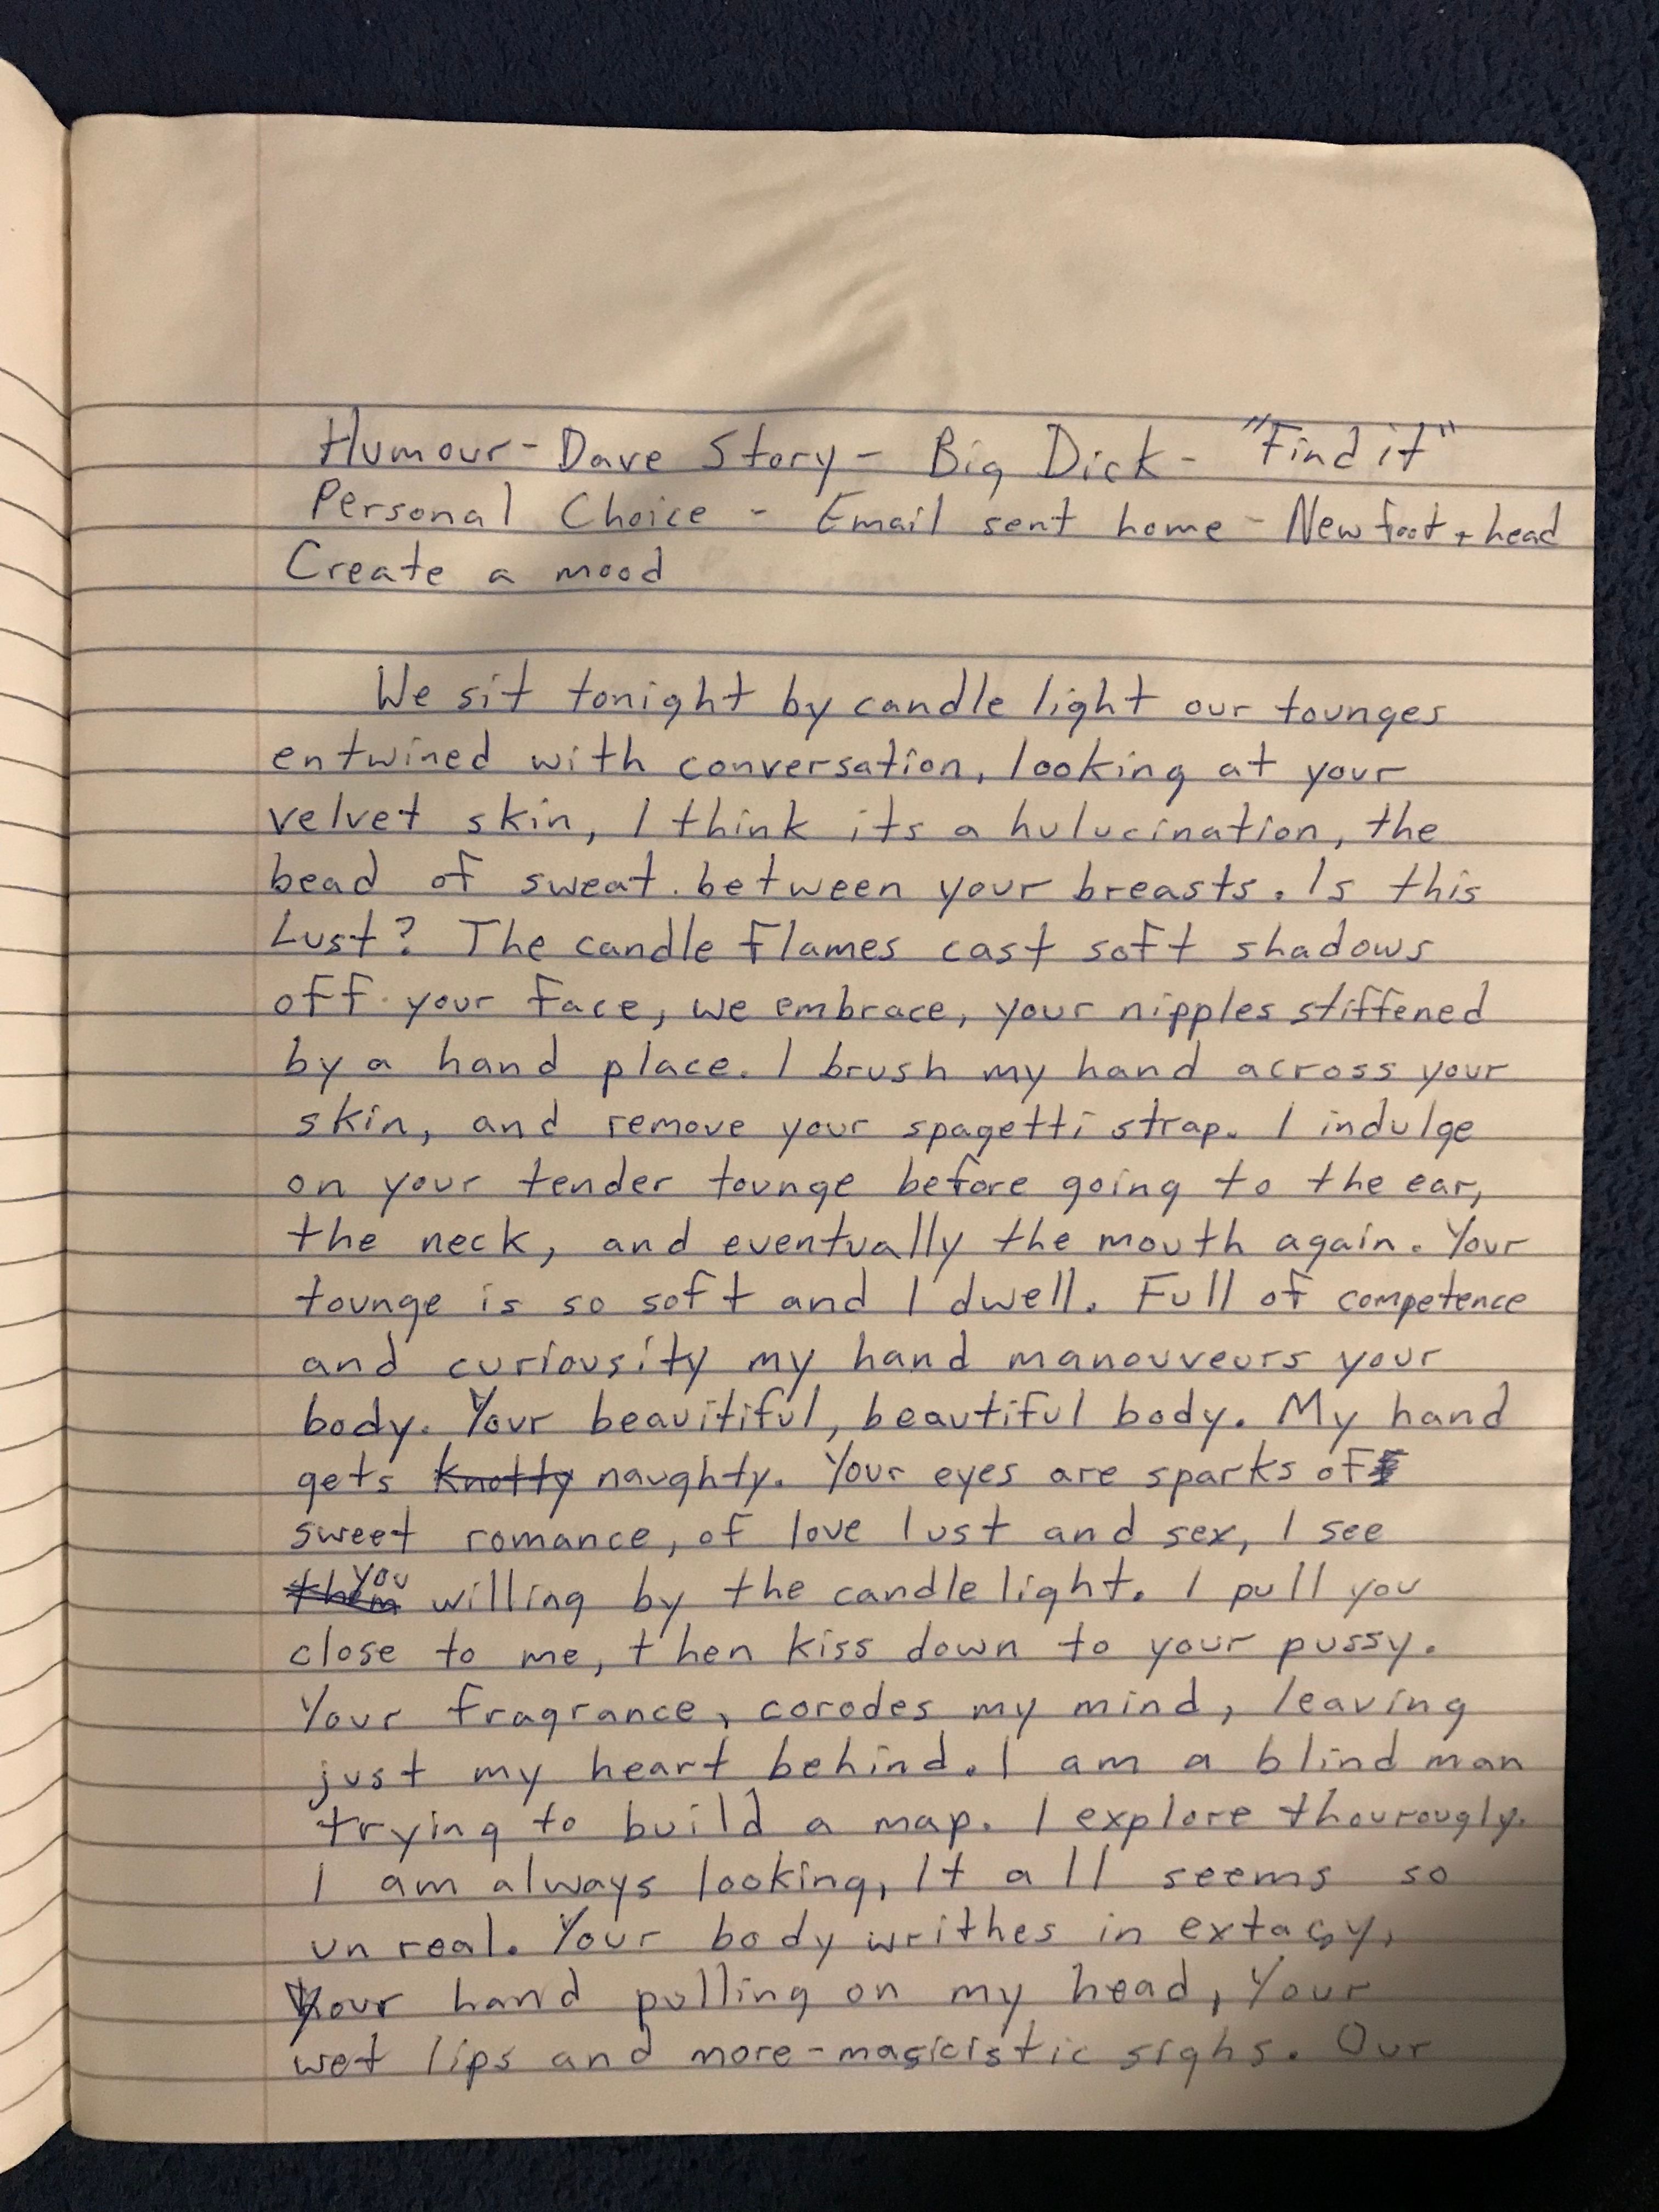 Humour - Dave Story - Big Dick - "Find it"
Personal Choice - Email sent home - New foot + head
Create a mood
We sit tonight by candle light our tounges
entwined with conversation, looking at your
velvet skin, I think its a hulucination, the
bead of sweat between your breasts. Is this
Lust? The candle flames cast soft shadows
off your face, we embrace, your nipples stiffened
by a hand place. I brush my hand across your
skin, and remove your spagetti strap. I indulge
on your tender tounge before going to the ear,
the neck, and eventually the mouth again. Your
tounge is so soft and I dwell. Full of competence
and curiousity my hand manouveurs your
body. Your beauitiful, beautiful body. My hand
gets knotty naughty. Your eyes are sparks of
sweet romance, of love lust and sex, I see
them you willing by the candle light. I pull you
close to me, then kiss down to your pussy.
Your fragrance, corodes my mind, leaving
just my heart behind. I am a blind man
trying to build a map. I explore thourougly.
I am always looking, It all seems so
un real. Your body writhes in extacy,
Your hand pulling on my head, Your
wet lips and more - magicistic sighs. Our